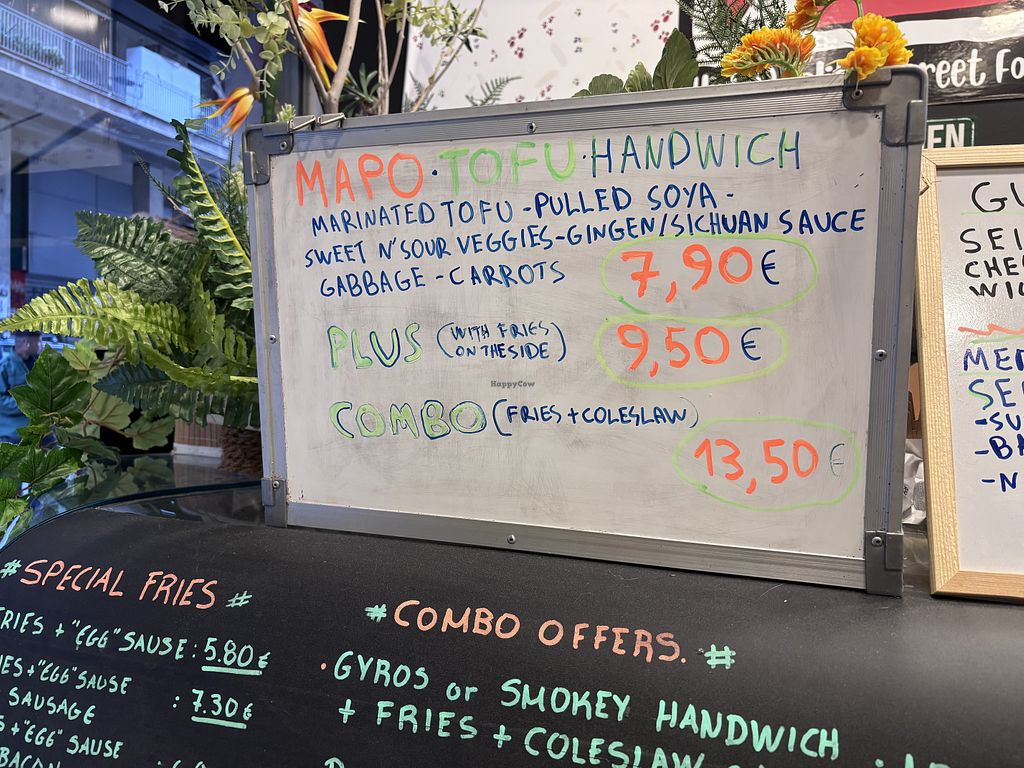 MAPO·TOFU·HANDWICH
MARINATED TOFU -PULLED SOYA-
SWEET N'SOUR VEGGIES-GINGEN/SICHUAN SAUCE
GABBAGE - CARROTS
7,90€
PLUS (WITH FRIES
ON THE SIDE)
9,50€
HappyCow
COMBO (FRIES + COLESLAW)
13,50€
# SPECIAL FRIES #
FRIES + "EGG" SAUSE: 5.80€
"EGG" SAUSE
SAUSAGE : 7.30€
+ "EGG" SAUSE
BACON
# COMBO OFFERS. #
· GYROS or SMOKEY HANDWICH
+ FRIES + COLESLAW
EN